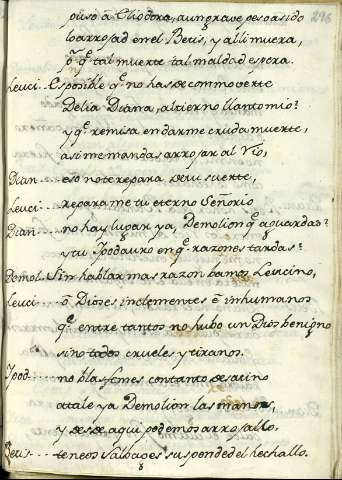 296
puso à Cliodora, aun grave peso asido
lo arrojad en el Betis, y alli muera,
q̃ tal muerte tal maldad espera.
Leuci. Es posible q̃ no has de commoverte
Delia Diana, al tierno llanto mio?
y q̃ remisa en darme cruda muerte,
asi me mandas arrojar al rio,
Dian. eso no te repara de tu suerte,
Leuci. reparame tu eterno Señorio
Dian. no hay lugar ya, Demolion q̃ aguardas?
y tu Ipodauro en q̃ razones tardas?
Demol. Sin hablar mas razon bamos Leucino,
Leuci. ò Dioses inclementes ò inhumanos
q̃ entre tantos no hubo un Dios benigno
sino todos crueles y tiranos.
Ipod. no blasfemes con tanto desatino
atale ya Demolion las manos,
y desde aqui podemos arrojallo.
Betis. teneos salbages suspended el hechallo.